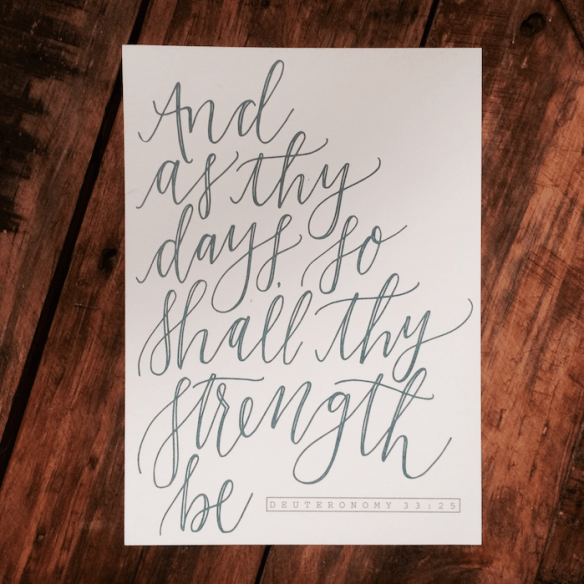 And
as thy
days, so
shall thy
strength
be
DEUTERONOMY 33:25